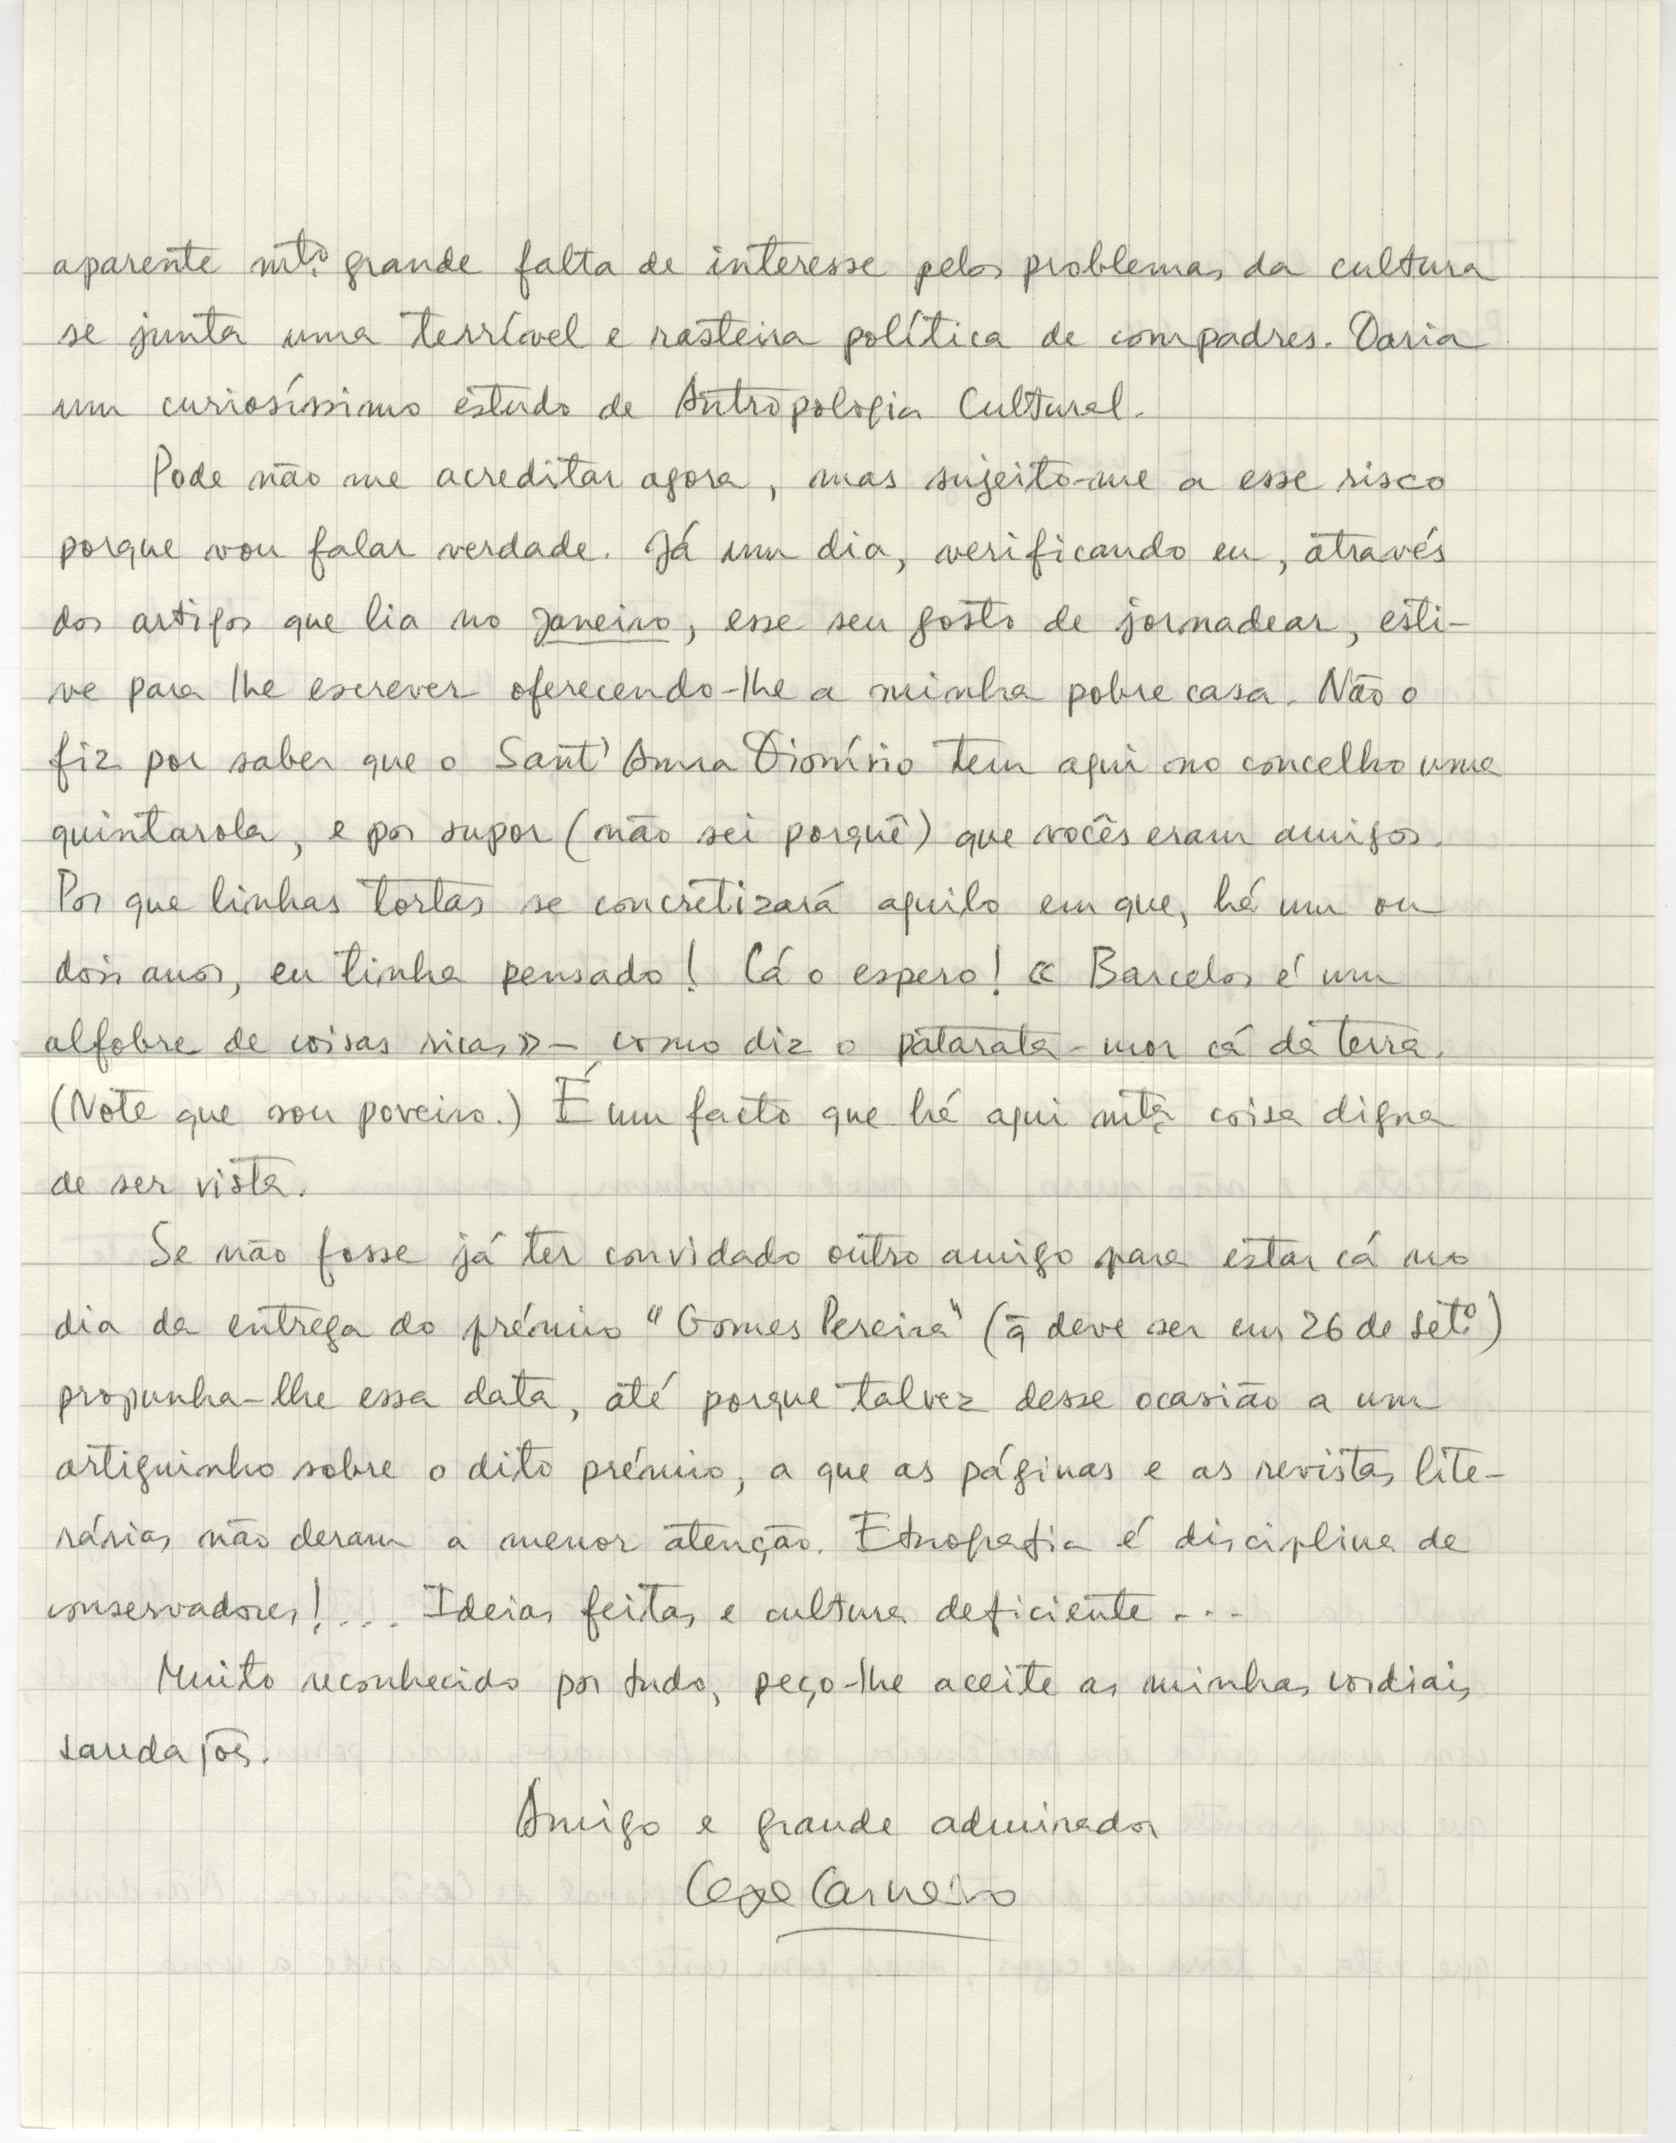 aparente mt.º grande falta de interesse pelos problemas da cultura
se junta uma terrível e rasteira política de compadres. Daria
um curiosíssimo estudo de Antropologia Cultural.
Pode não me acreditar agora, mas sujeito-me a esse risco
porque vou falar verdade. Já um dia, verificando eu, através
dos artigos que lia no Janeiro, esse seu gosto de jornadear, esti-
ve para lhe escrever oferecendo-lhe a minha pobre casa. Não o
fiz por saber que o Sant'Anna Dionísio tem aqui no concelho uma
quintarola, e por supor (não sei porquê) que vocês eram amigos.
Por que linhas tortas se concretizará aquilo em que, há um ou
dois anos, eu tinha pensado! Cá o espero! « Barcelos é um
alfobre de coisas ricas» – como diz o patarata-mor cá da terra.
(Note que sou poveiro.) É um facto que há aqui mt.ª coisa digna
de ser vista.
Se não fosse já ter convidado outro amigo para estar cá no
dia da entrega do prémio "Gomes Pereira" (q̄ deve ser em 26 de Set.º)
propunha-lhe essa data, até porque talvez desse ocasião a um
artiguinho sobre o dito prémio, a que as páginas e as revistas lite-
rárias não deram a menor atenção. Etnografia é disciplina de
conservadores!... Ideias feitas e cultura deficiente...
Muito reconhecido por tudo, peço-lhe aceite as minhas cordiais
saudações.
Amigo e grande admirador
Carneiro